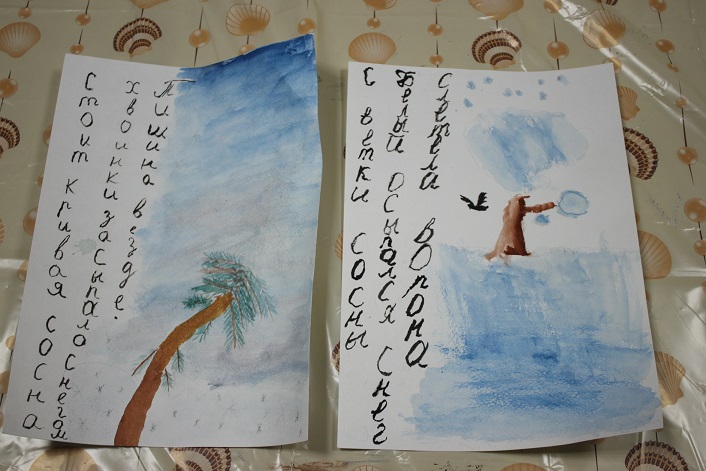 Тишина везде.
хвоинки засыпало снегом
Стоит кривая сосна
Слетела ворона
Белый осыпался снег
С ветки сосны